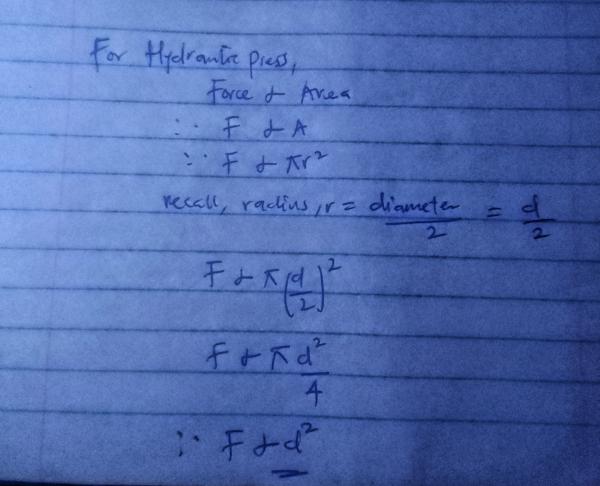 For Hydraulic press,
Force ∝ Area
∴ F ∝ A
∴ F ∝ πr²
recall, radius, r = diameter/2 = d/2
F ∝ π(d/2)²
F ∝ πd²/4
∴ F ∝ d²